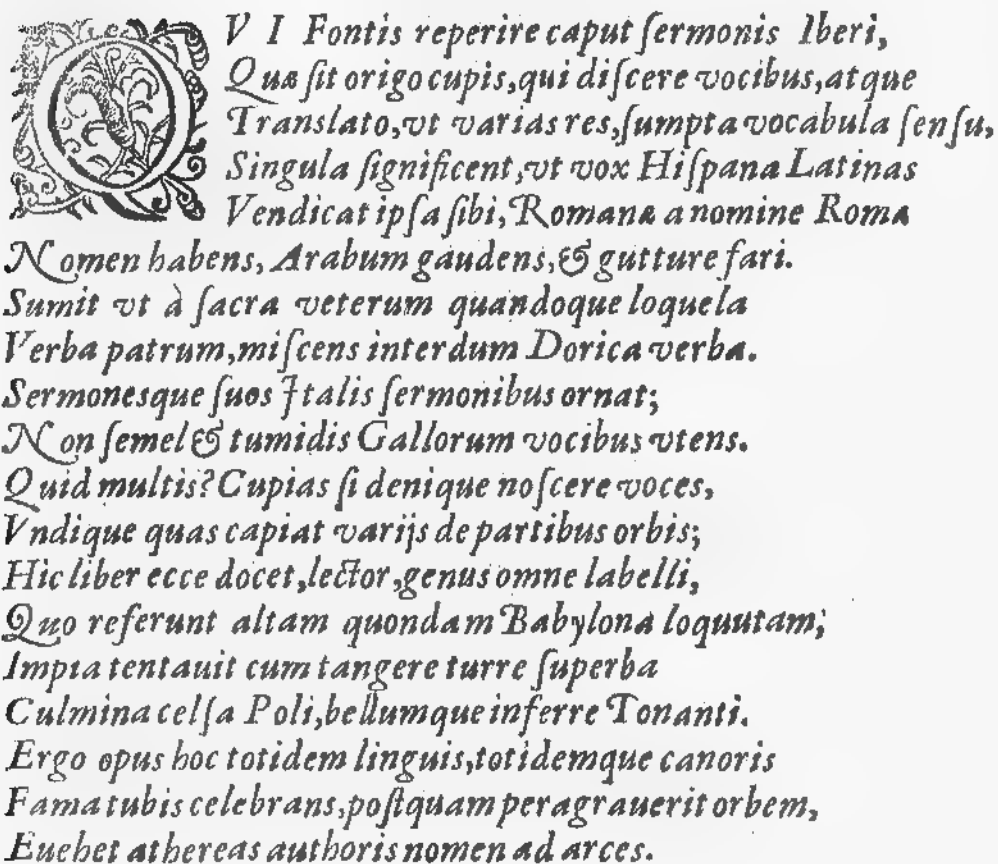 QVI Fontis reperire caput ſermonis Iberi,
Quæ ſit origo cupis, qui diſcere vocibus, atque
Translato, vt varias res, ſumpta vocabula ſenſu,
Singula ſignificent, vt vox Hiſpana Latinas
Vendicat ipſa ſibi, Romanæ a nomine Romæ
Nomen habens, Arabum gaudens, & gutture fari.
Sumit vt à ſacra veterum quandoque loquela
Verba patrum, miſcens interdum Dorica verba.
Sermonesque ſuos Italis ſermonibus ornat;
Non ſemel & tumidis Gallorum vocibus vtens.
Quid multis? Cupias ſi denique noſcere voces,
Vndique quas capiat varijs de partibus orbis;
Hic liber ecce docet, lector, genus omne labelli,
Quo referunt altam quondam Babylona loquutam;
Impia tentauit cum tangere turre ſuperba
Culmina celſa Poli, bellumque inferre Tonanti.
Ergo opus hoc totidem linguis, totidemque canoris
Fama tubis celebrans, poſtquam peragrauerit orbem,
Euehet æthereas authoris nomen ad arces.